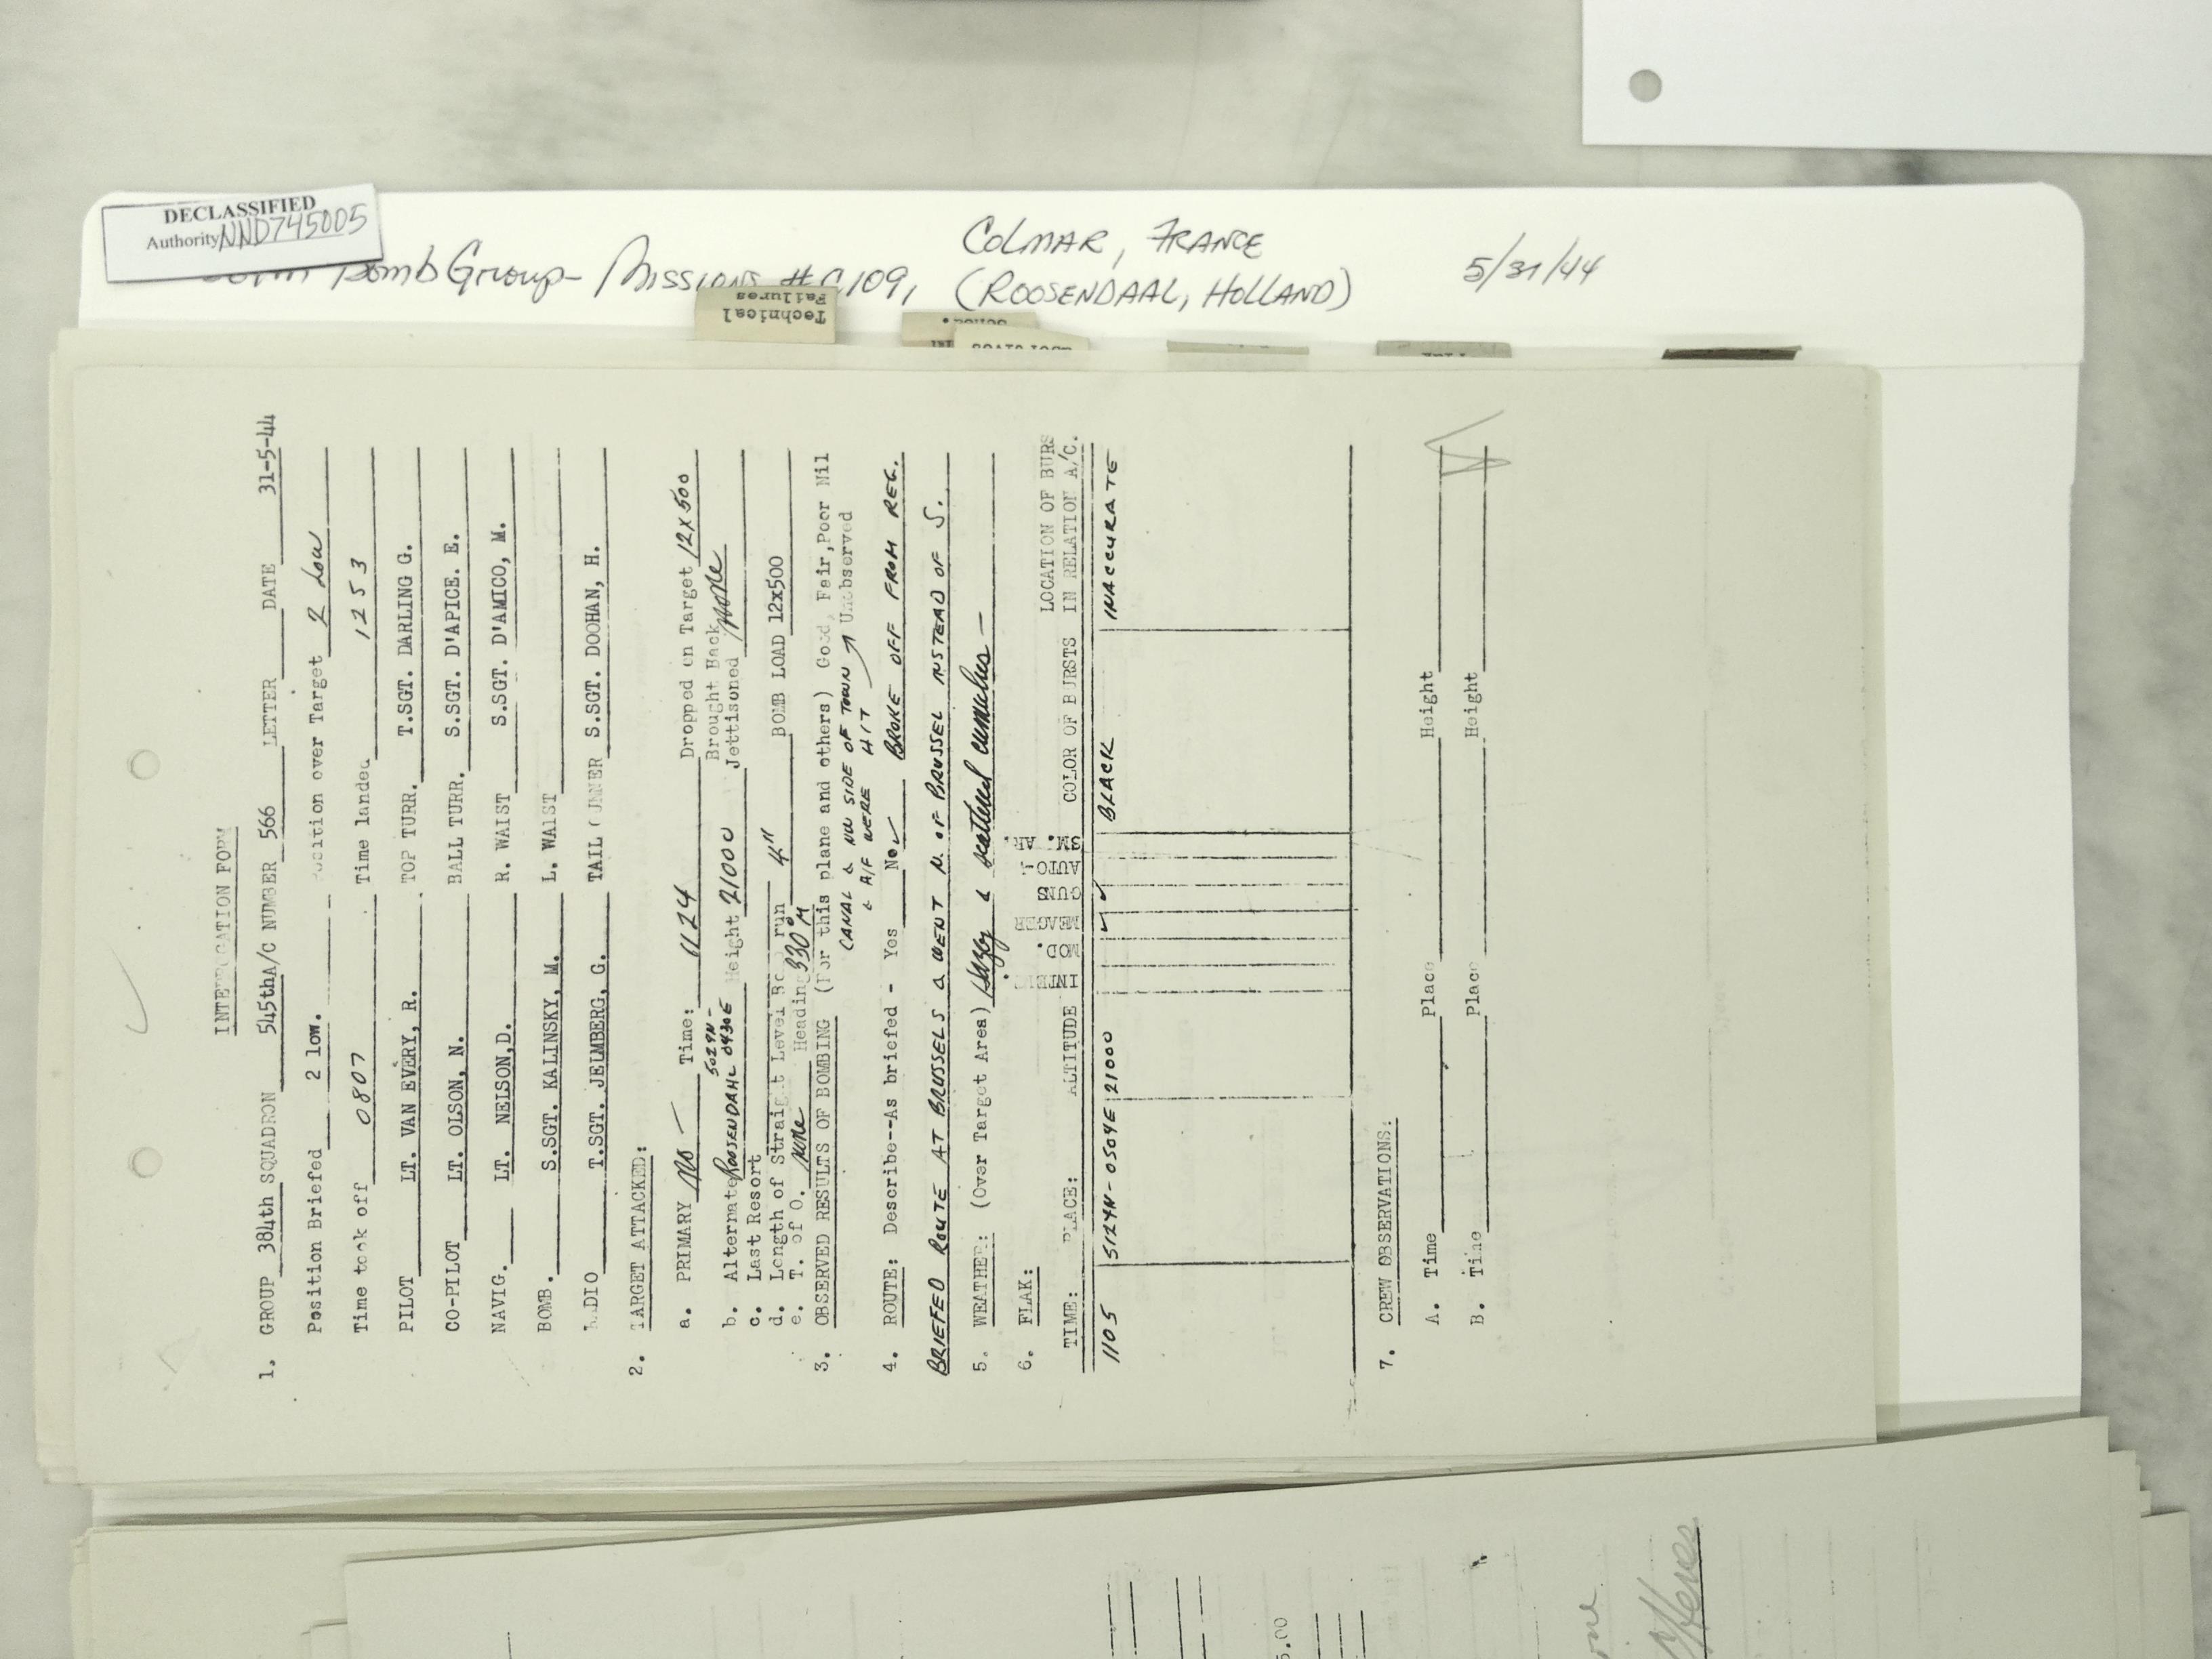 DECLASSIFIED
Authority NND745005
Bomb Group - Missions #109,
COLMAR, FRANCE
(ROOSENDAAL, HOLLAND)
5/31/44
Technical
Failures
INTERROGATION FORM
1. GROUP 384th SQUADRON 545th A/C NUMBER 566 LETTER DATE 31-5-44
Position Briefed 2 low. Position over Target 2 Low
Time took off 0807 Time landed 1253
PILOT LT. VAN EVERY, R. TOP TURR. T.SGT. DARLING G.
CO-PILOT LT. OLSON, N. BALL TURR. S.SGT. D'APICE. E.
NAVIG. LT. NELSON,D. R. WAIST S.SGT. D'AMICO, M.
BOMB. S.SGT. KALINSKY, M. L. WAIST
RADIO T.SGT. JELMBERG, G. TAIL GUNNER S.SGT. DOOHAN, H.
2. TARGET ATTACKED:
a. PRIMARY No — Time: 1124 Dropped on Target 12x500
5029N-
Brought Back
b. Alternate ROOSENDAHL 0430E Height 21000 Jettisoned None
c. Last Resort
d. Length of Straight Level Bomb run 4" BOMB LOAD 12x500
e. T. of O. None Heading 330°M
3. OBSERVED RESULTS OF BOMBING (For this plane and others) Good, Fair,Poor Nil
CANAL & NW SIDE OF TOWN Unobserved
& A/F WERE HIT
4. ROUTE: Describe--As briefed - Yes No ✓ BROKE OFF FROM REG.
BRIEFED ROUTE AT BRUSSELS & WENT N. OF BRUSSEL INSTEAD OF S.
5. WEATHER: (Over Target Area) Hazy & scattered cumulus —
6. FLAK:
TIME: PLACE: ALTITUDE INTENSE MOD. MEAGER GUNS AUTO- SM. AR. COLOR OF BURSTS LOCATION OF BURS
IN RELATION A/C.
1105 5124N-0504E 21000 ✓ ✓ BLACK INACCURATE
7. CREW OBSERVATIONS:
A. Time Place Height
B. Time Place Height
5.00